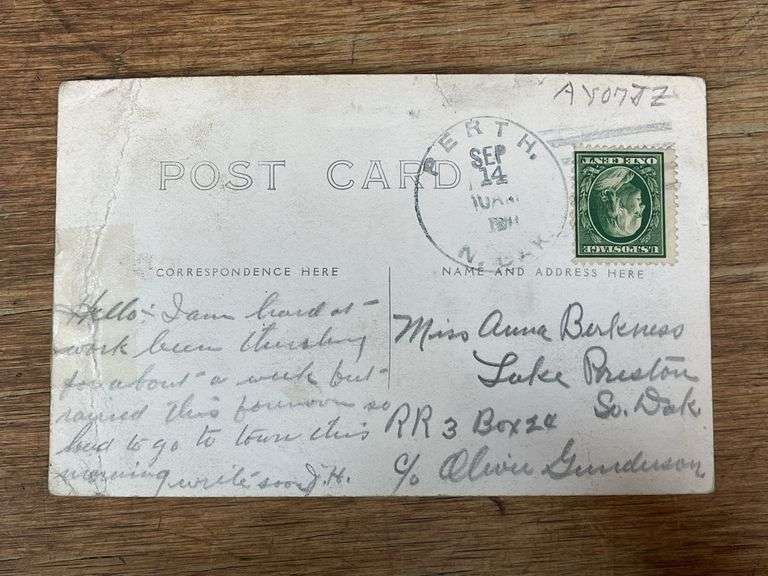 AYO7JZ
POST CARD
PERTH.
SEP
14
N. DAK.
ONE CENT
U.S. POSTAGE
CORRESPONDENCE HERE
NAME AND ADDRESS HERE
Hello:- I am hard at
work been thrashing
for about a week but
rained this forenoon so
had to go to town this
morning write soon J.H.
Miss Anna Berkness
Lake Preston
So. Dak
RR 3 Box 24
c/o Oliver Gunderson